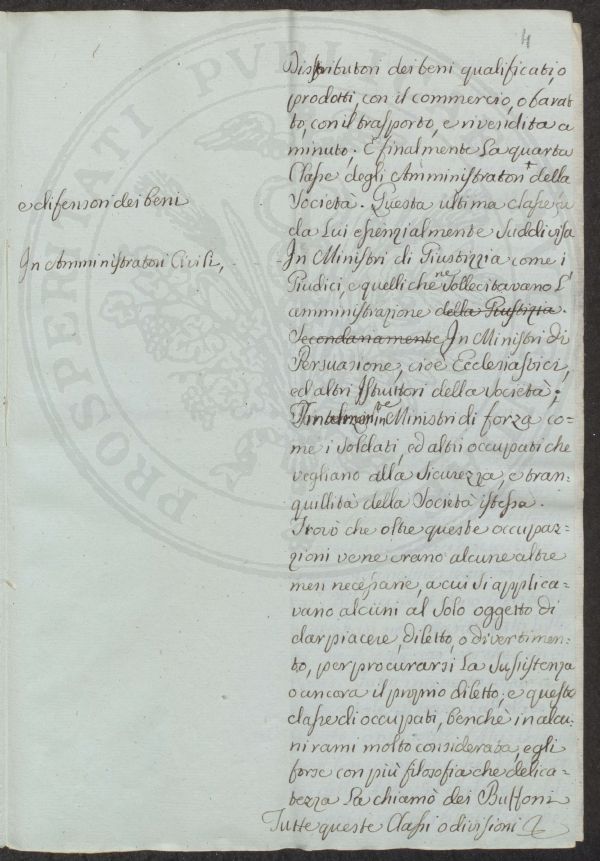 4
Distributori dei beni qualificati, o
prodotti, con il commercio, o barat
to, con il trasporto, e rivendita a
minuto. E finalmente la quarta
Classe degli Amministratori della
Società. Questa ultima classe fu
da lui essenzialmente suddivisa
In Ministri di Giustizia come i
Giudici, e quelli che ne sollecitavano l'
amministrazione della Giustizia.
Secondariamente In Ministri di
Persuasione, cioè Ecclesiastici,
ed altri Istruttori della Società;
e in Ministri di forza co=
me i soldati, ed altri occupati che
vegliano alla sicurezza, e tran=
quillità della Società istessa.
Trovò che oltre queste occupaz=
zioni ve ne erano alcune altre
men necessarie, a cui si applica=
vano alcuni al solo oggetto di
dar piacere, diletto, o divertimen=
to, per procurarsi la sussistenza
o ancora il proprio diletto; e questa
classe di occupati, benchè in alcu=
ni rami molto considerata, egli
forse con più filosofia che delica=
tezza la chiamò dei Buffoni
Tutte queste Classi o divisioni
e difensori dei beni
In Amministratori Civili,
PROSPERITATI PUBLI